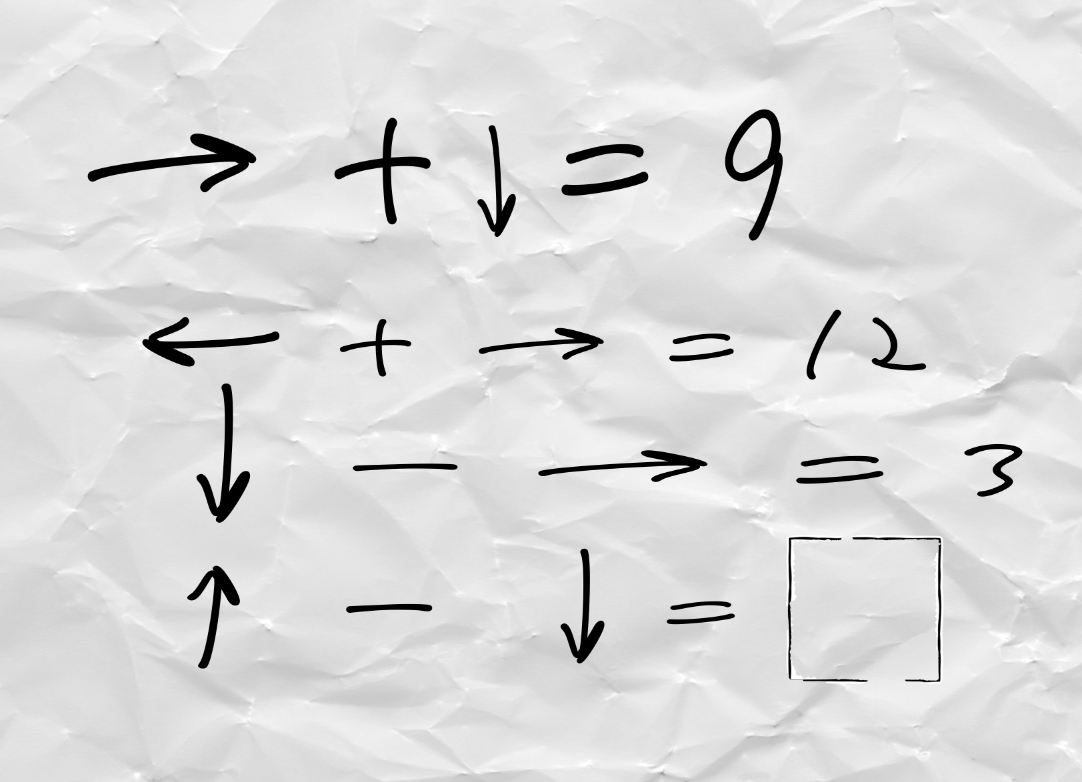 → + ↓ = 9
← + → = 12
↓ − → = 3
↑ − ↓ = □